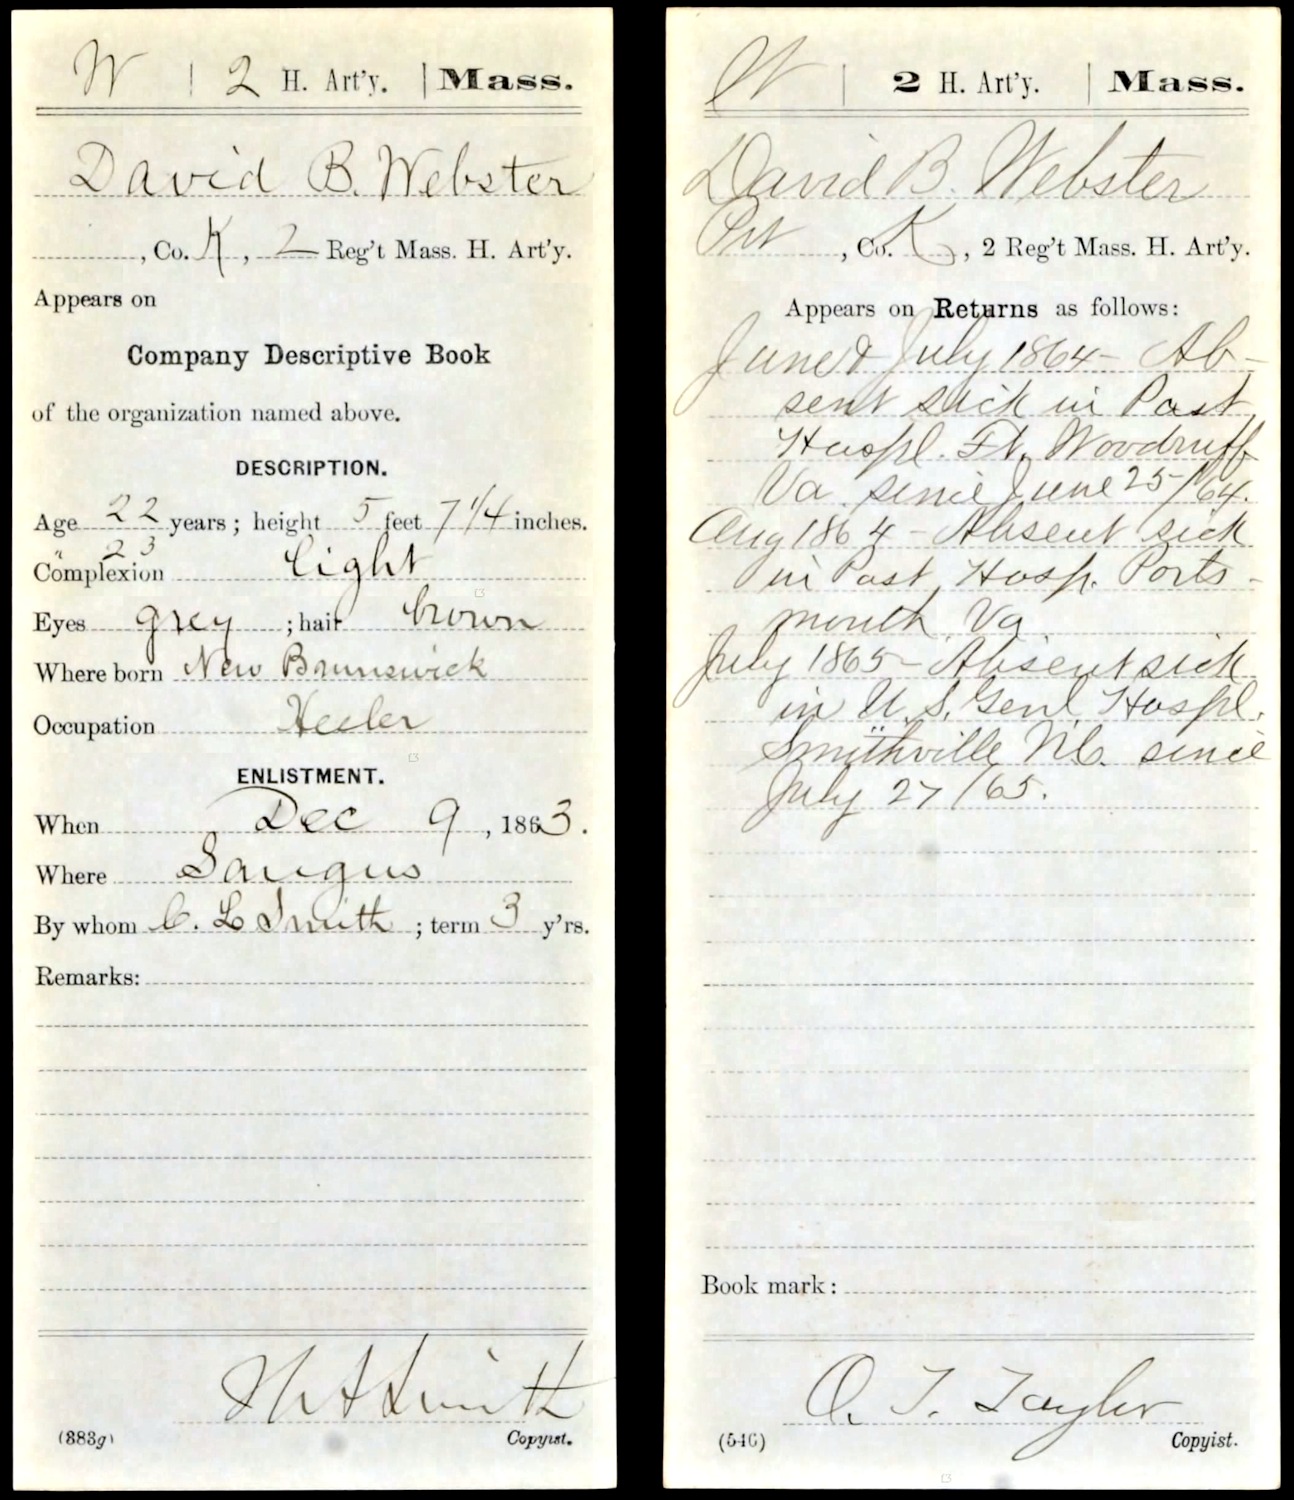 W | 2 H. Art'y. | Mass.
David B. Webster
, Co. K, 2 Reg't Mass. H. Art'y.
Appears on
Company Descriptive Book
of the organization named above.
DESCRIPTION.
Age 22 years; height 5 feet 7 1/4 inches.
" 23
Complexion light
Eyes grey ; hair brown
Where born New Brunswick
Occupation Heeler
ENLISTMENT.
When Dec 9, 1863.
Where Saugus
By whom C. L Smith ; term 3 y'rs.
Remarks:
Smith
(383g)
Copyist.
W | 2 H. Art'y. | Mass.
David B. Webster
Pvt , Co. K, 2 Reg't Mass. H. Art'y.
Appears on Returns as follows:
June & July 1864 - Ab-
sent sick in Post
Hospl. Ft. Woodruff
Va since June 25/64.
Aug 1864 - Absent sick
in Post Hosp. Ports-
mouth Va
July 1865 - Absent sick
in U. S. Genl Hospl.
Smithville N.C. since
July 27/65.
Book mark:
O. T. Taylor
(546)
Copyist.